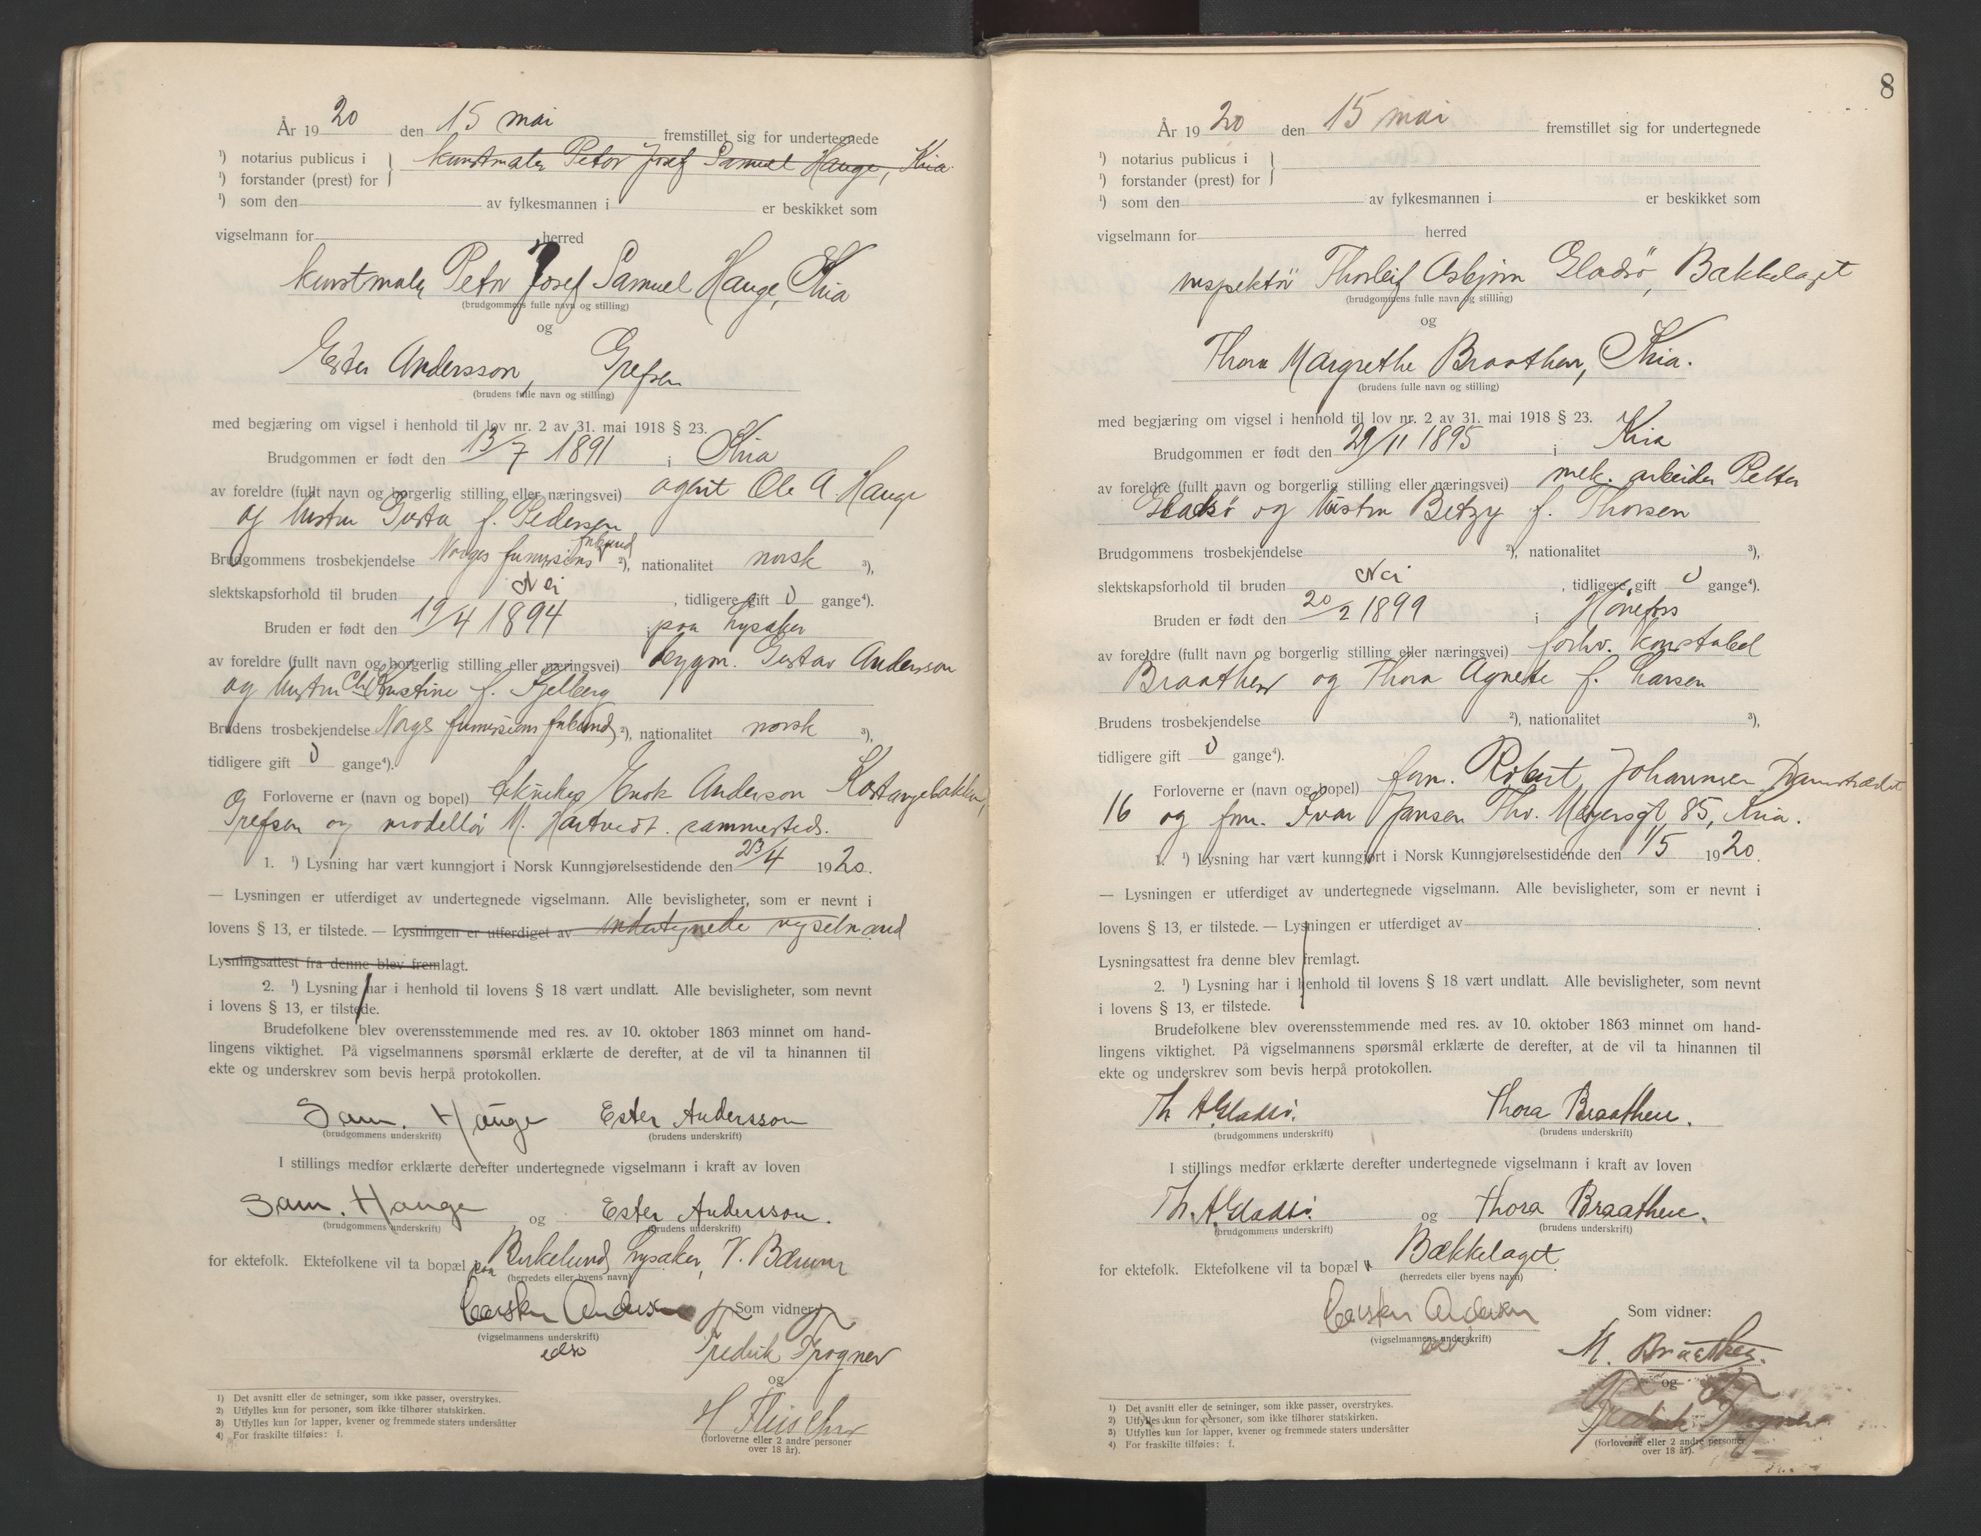 År 1920 den 15 mai fremstillet sig for undertegnede
¹) notarius publicus i
kunstmaler Peter Josef Samuel Hauge, Kria
¹) forstander (prest) for
¹) som den av fylkesmannen i er beskikket som
vigselmann for herred
kunstmaler Peter Josef Samuel Hauge, Kria
(brudgommens fulle navn og stilling)
og
Ester Andersson, Grefsen
(brudens fulle navn og stilling)
med begjæring om vigsel i henhold til lov nr. 2 av 31. mai 1918 § 23.
Brudgommen er født den 13/7 1891 i Kria
av foreldre (fullt navn og borgerlig stilling eller næringsvei) agent Ole A. Hauge
og hustru f. Pedersen
Brudgommens trosbekjendelse Norges ²), nationalitet norsk ³),
slektskapsforhold til bruden Nei, tidligere gift 0 gange⁴).
Bruden er født den 19/4 1894 i paa Lysaker
av foreldre (fullt navn og borgerlig stilling eller næringsvei) bygm. Gustav Anderson
og hustru Kristine f. Fjelberg
Brudens trosbekjendelse Norges ²), nationalitet norsk ³),
tidligere gift 0 gange⁴).
Forloverne er (navn og bopel) Enok Anderson
Grefsen og modellør M. Hartvedt sammesteds.
1. ¹) Lysning har vært kunngjort i Norsk Kunngjørelsestidende den 23/4 1920.
— Lysningen er utferdiget av undertegnede vigselmann. Alle bevisligheter, som er nevnt i
lovens § 13, er tilstede. — Lysningen er utferdiget av undertegnede vigselmand
Lysningsattest fra denne blev fremlagt.
2. ¹) Lysning har i henhold til lovens § 18 vært undlatt. Alle bevisligheter, som nevnt
i lovens § 13, er tilstede.
Brudefolkene blev overensstemmende med res. av 10. oktober 1863 minnet om hand-
lingens viktighet. På vigselmannens spørsmål erklærte de derefter, at de vil ta hinannen til
ekte og underskrev som bevis herpå protokollen.
Sam. Hauge Ester Andersson
(brudgommens underskrift) (brudens underskrift)
I stillings medfør erklærte derefter undertegnede vigselmann i kraft av loven
Sam. Hauge og Ester Andersson.
(brudgommens underskrift) (brudens underskrift)
for ektefolk. Ektefolkene vil ta bopæl paa Birkelund, Lysaker, V. Bærum
(herredets eller byens navn)
Carsten Andersen Som vidner:
(vigselmannens underskrift)
Fredrik Frogner
og
H
(forloverne eller 2 andre personer
over 18 år).
1) Det avsnitt eller de setninger, som ikke passer, overstrykes.
2) Utfylles kun for personer, som ikke tilhører statskirken.
3) Utfylles kun for lapper, kvener og fremmede staters undersåtter
4) For fraskilte tilføies: f.
8
År 1920 den 15 mai fremstillet sig for undertegnede
¹) notarius publicus i
¹) forstander (prest) for
¹) som den av fylkesmannen i er beskikket som
vigselmann for herred
inspektør Thorleif Asbjørn Gladsø, Bækkelaget
(brudgommens fulle navn og stilling)
og
Thora Margrethe Braathen, Kria.
(brudens fulle navn og stilling)
med begjæring om vigsel i henhold til lov nr. 2 av 31. mai 1918 § 23.
Brudgommen er født den 29/11 1895 i Kria
av foreldre (fullt navn og borgerlig stilling eller næringsvei) mek. arbeider Petter
Gladsø og hustru Betzy f. Thorsen
Brudgommens trosbekjendelse ²), nationalitet ³),
slektskapsforhold til bruden Nei, tidligere gift 0 gange⁴).
Bruden er født den 20/2 1899 i Hønefos
av foreldre (fullt navn og borgerlig stilling eller næringsvei) forhv. konstabel
Braathen og Thora Agnete f. Larsen
Brudens trosbekjendelse ²), nationalitet ³),
tidligere gift 0 gange⁴).
Forloverne er (navn og bopel) Robert Johannsen
16 og Ivar Jansen Thv. Meyersgt. 85, Kria.
1. ¹) Lysning har vært kunngjort i Norsk Kunngjørelsestidende den 1/5 1920.
— Lysningen er utferdiget av undertegnede vigselmann. Alle bevisligheter, som er nevnt i
lovens § 13, er tilstede. — Lysningen er utferdiget av .
Lysningsattest fra denne blev fremlagt.
2. ¹) Lysning har i henhold til lovens § 18 vært undlatt. Alle bevisligheter, som nevnt
i lovens § 13, er tilstede.
Brudefolkene blev overensstemmende med res. av 10. oktober 1863 minnet om hand-
lingens viktighet. På vigselmannens spørsmål erklærte de derefter, at de vil ta hinannen til
ekte og underskrev som bevis herpå protokollen.
Th. A. Gladsø. Thora Braathen.
(brudgommens underskrift) (brudens underskrift)
I stillings medfør erklærte derefter undertegnede vigselmann i kraft av loven
Th. A. Gladsø. og Thora Braathen.
(brudgommens underskrift) (brudens underskrift)
for ektefolk. Ektefolkene vil ta bopæl i Bækkelaget.
(herredets eller byens navn)
Carsten Andersen Som vidner:
(vigselmannens underskrift)
M. Braathen.
og
Fredrik Frogner
(forloverne eller 2 andre personer
over 18 år).
1) Det avsnitt eller de setninger, som ikke passer, overstrykes.
2) Utfylles kun for personer, som ikke tilhører statskirken.
3) Utfylles kun for lapper, kvener og fremmede staters undersåtter
4) For fraskilte tilføies: f.